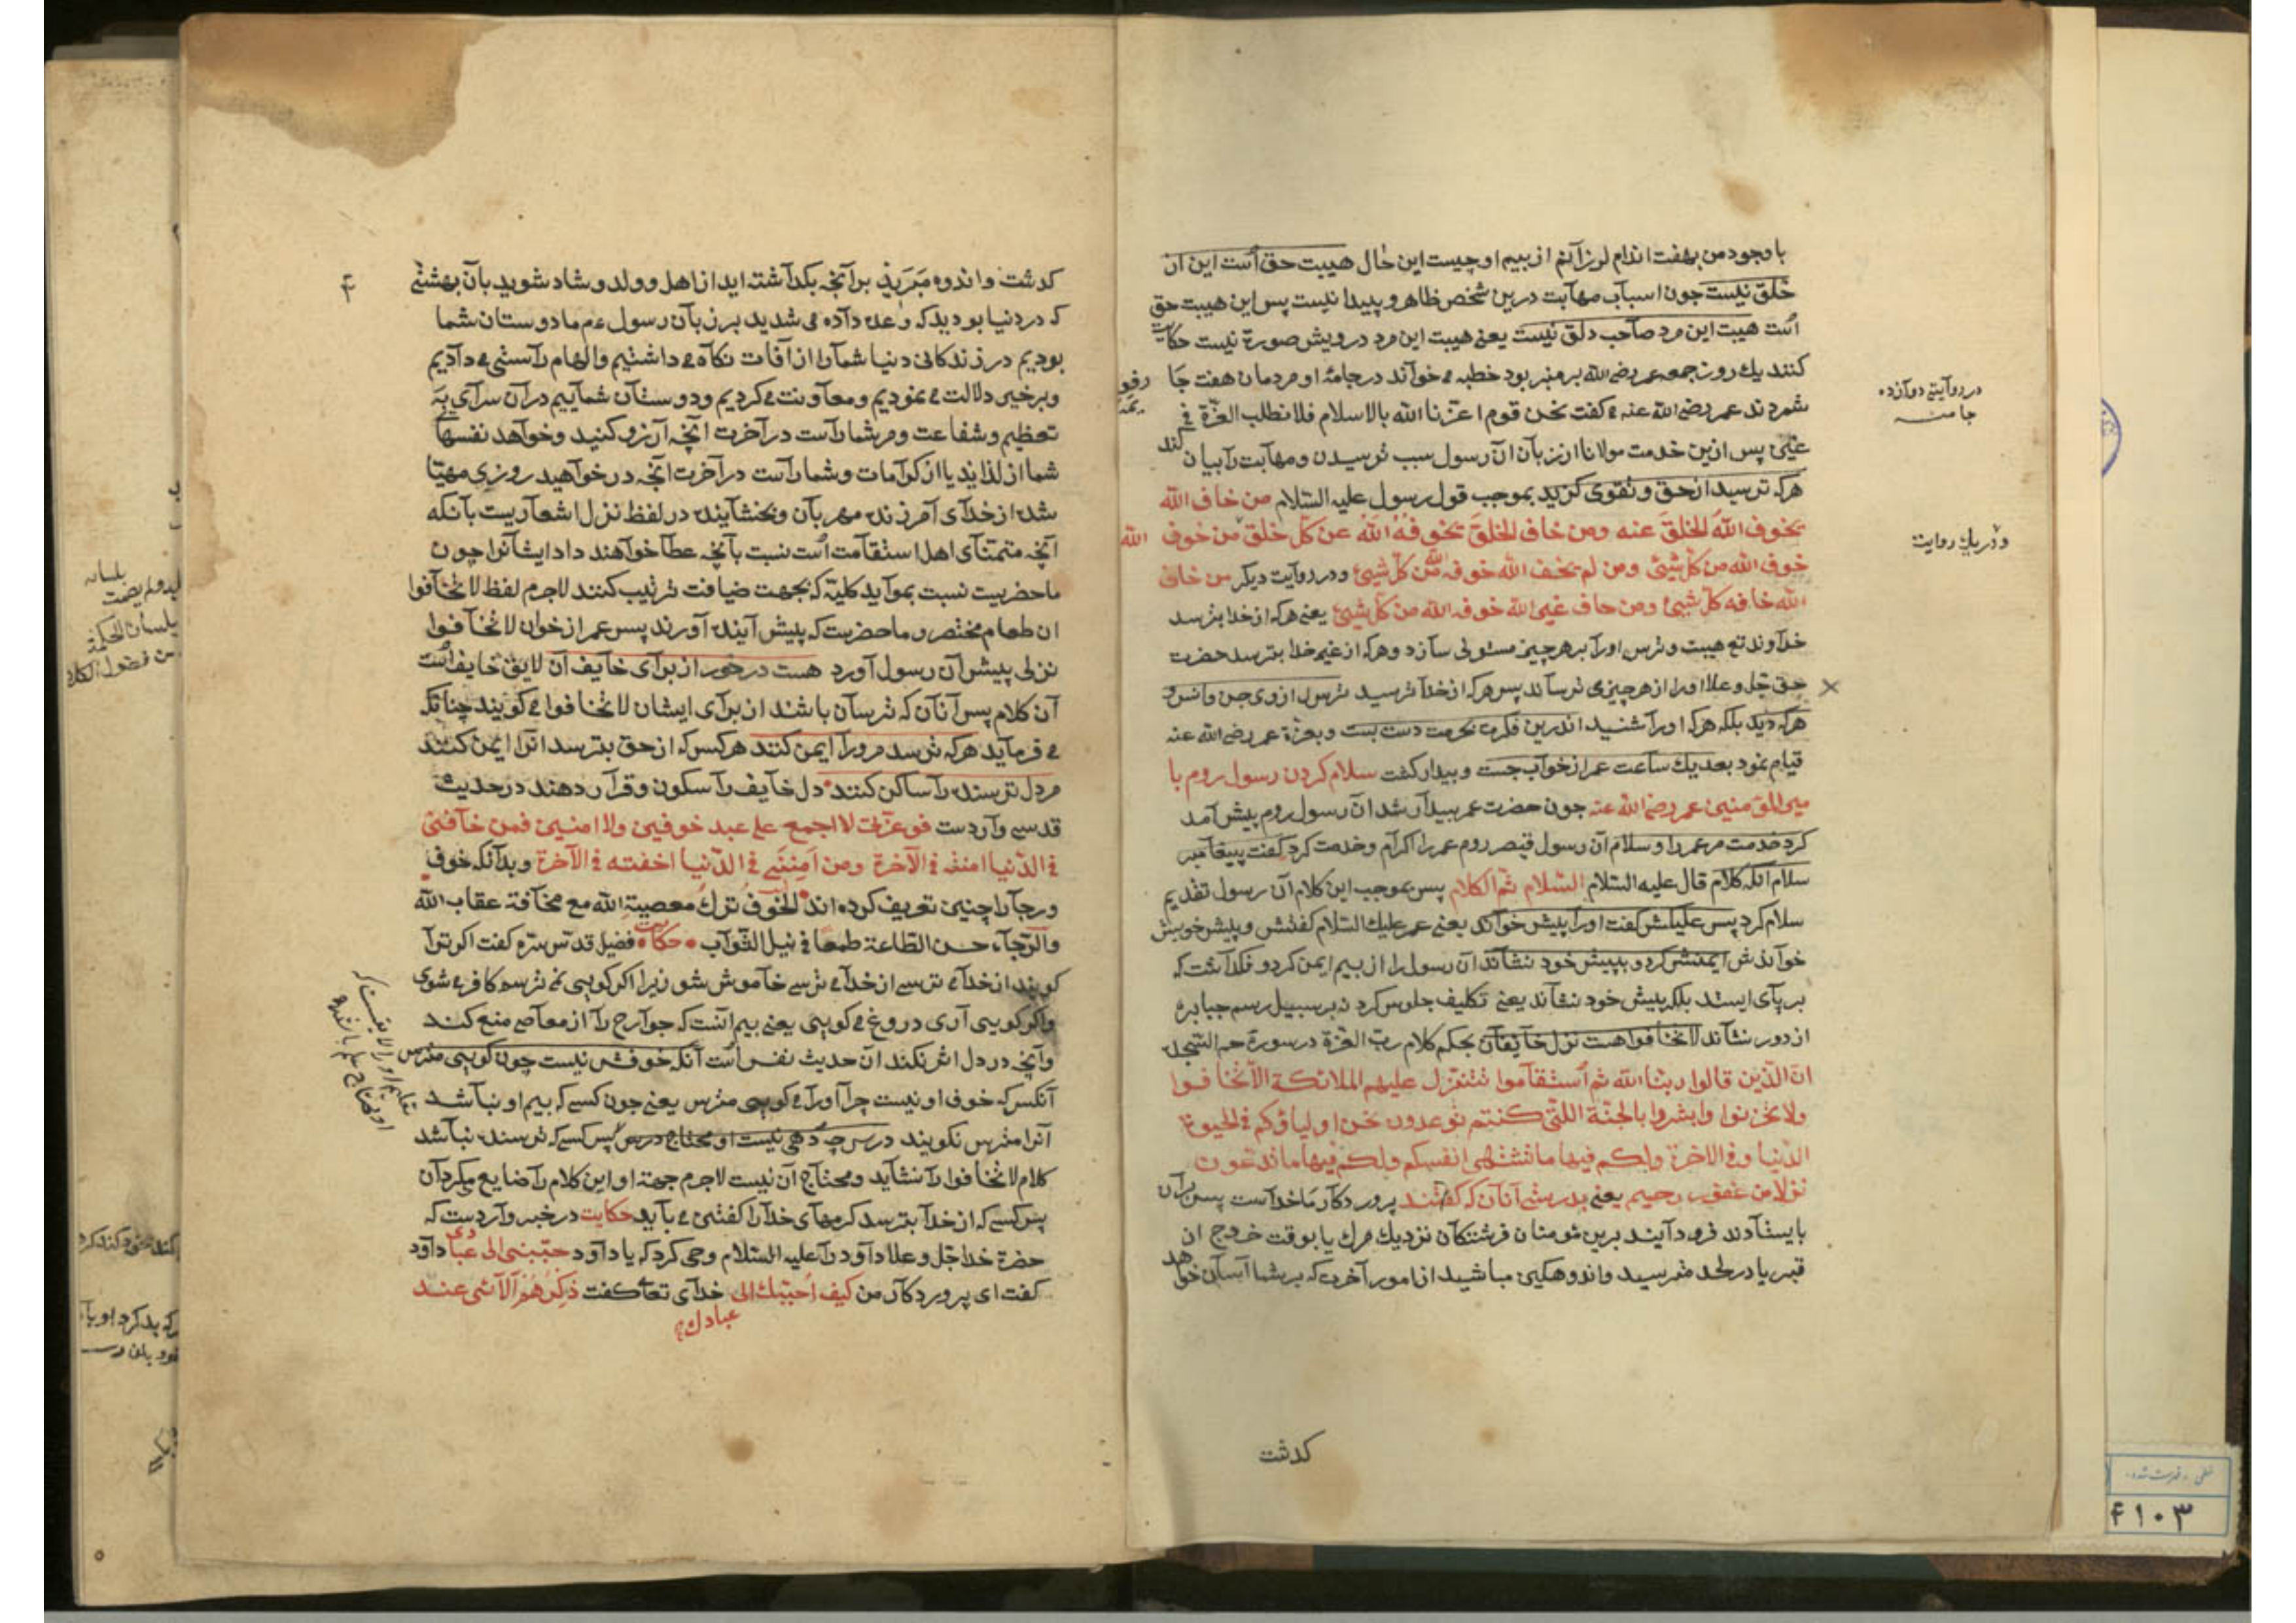 باوجود من بهفت اندام لرزانم از بیم او چیست این حال هیبت حق است این از
خلق نیست چون اسباب مهابت درین شخص ظاهر و پیدا نیست پس این هیبت حق
است هیبت این مرد صاحب دلق نیست یعنی هیبت این مرد درویش صورة نیست حکایت
کنند یك روز جمعه عمر رضی الله بر منبر بود خطبه می خواند در جامهٔ او مردمان هفت جا
شمردند عمر رضی الله عنه می کفت نحن قوم اعزنا الله بالاسلام فلا نطلب العزة فی
غیره پس ازین خدمت مولانا از زبان آن رسول سبب ترسیدن و مهابت را بیان کند
هرکه ترسید از حق و تقوی کزید بموجب قول رسول علیه السلام من خاف الله
یخوف الله الخلق عنه ومن خاف الخلق یخوفه الله عن کل خلق من خوف الله
خوف الله من کل شیئ ومن لم یخف الله خوفه الله من کل شیئ ودر روایت دیکر من خاف
الله خافه کل شیئ ومن خاف غیر الله خوفه الله من کل شیئ یعنی هرکه از خدا بترسد
خداوند تع هیبت و ترس اورا بر هر چیز مستولی سازد و هرکه از غیر خدا بترسد حضرت
حق جل وعلا اورا از هر چیزی ترساند پس هرکه از خدا ترسید ترسد از وی جن وانس و
هرکه دید بلکه هرکه اورا شنید اندرین فکرت بحرمت دست بست و بعزة عمر رضی الله عنه
قیام نمود بعد یك ساعت عمر از خواب جست و بیدار کشت سلام کردن رسول روم با
میر المؤمنین عمر رضی الله عنه چون حضرت عمر بیدار شد آن رسول روم پیش آمد
کرد خدمت مر عمر را و سلام آن رسول قیصر روم عمر را اکرام و خدمت کرد کفت پیغامبر
سلام آنکه کلام قال علیه السلام السلام ثم الکلام پس بموجب این کلام آن رسول تقدیم
سلام کرد پس علیکش کفت اورا پیش خواند یعنی عمر علیك السلام کفتش و پیش خویش
خواندش ایمنش کرد و بپیش خود نشاند آن رسول را از بیم ایمن کرد و نکذاشت که
بر پای ایستد بلکه پیش خود نشاند یعنی تکلیف جلوس کرد نه بر سبیل رسم جبابره
از دور نشاند لا تخافوا هست نزل خایفان بحکم کلام رب العزة در سورة حم السجده
ان الذین قالوا ربنا الله ثم استقاموا تتنزل علیهم الملائکة الا تخافوا
ولا تحزنوا وابشروا بالجنة اللتی کنتم توعدون نحن اولیاؤکم فی الحیوة
الدنیا وفی الاخرة ولکم فیها ما تشتهی انفسکم ولکم فیها ما تدعون
نزلا من غفور رحیم یعنی بدرستی آنان که کفتند پرورد کار ما خداست پس بران
بایستادند فرود آیند برین مؤمنان فرشتکان نزدیك مرك یا بوقت خروج از
قبر یا در لحد مترسید و اندوهکین مباشید از امور آخرت که بر شما آسان خواهد
کدشت
در روایتی دوازده
جا منه
ودر یك روایت
۴۱۰۳
کدشت و اندوه مبرید بر آنچه بکداشته اید از اهل و ولد و شاد شوید بآن بهشتی
که در دنیا بودید که وعده داده می شدید بر زبان رسول عم ما دوستان شما
بودیم در زندکانی دنیا شمارا از آفات نکاه می داشتیم و الهام راستی می دادیم
و بر خیر دلالت می نمودیم و معاونت می کردیم و دوستان شماییم در آن سرای به
تعظیم و شفاعت و مر شماراست در آخرت آنچه آرزو کنید و خواهد نفسهای
شما از لذایذ یا از کرامات و شماراست در آخرت آنچه در خواهید روزی مهیا
شده از خدای آمرزنده مهربان و بخشاینده در لفظ نزل اشعاریست بآنکه
آنچه متمنای اهل استقامت است نسبت بآنچه عطا خواهند داد ایشانرا چون
ماحضریست نسبت بموایده کلیه که بجهت ضیافت ترتیب کنند لاجرم لفظ لا تخافوا
ان طعام مختصر و ماحضریست که پیش آینده آورند پس عمر از خوان لا تخافوا
نزلی پیش آن رسول آورد هست در خور از برای خایف آن لایق خایف است
آن کلام پس آنان که ترسان باشند از برای ایشان لا تخافوا می کویند چنانکه
می فرماید هرکه ترسد مرورا ایمن کنند هرکس که از حق بترسد انرا ایمن کنند
مر دل ترسنده را ساکن کنند دل خایف را سکون و قرار دهند در حدیث
قدسی واردست فوعزتی لا اجمع علی عبد خوفین ولا امنین فمن خافنی
فی الدنیا امنته فی الآخرة ومن امننی فی الدنیا اخفته فی الآخرة و بدآنکه خوف
و رجارا چنین تعریف کرده اند الخوف ترك معصیة الله مع مخافة عقاب الله
والرجاء حسن الطاعة طمعا فی نیل الثواب حکایت فضیل قدس سره کفت اکر ترا
کویند از خدای ترسی از خدای ترسی خاموش شو زیرا اکر کویی نمی ترسم کافر می شوی
واکر کویی آری دروغ می کویی یعنی بیم آنست که جوارح را از معاصی منع کند
وآنچه در دل اثر نکند آن حدیث نفس است آنکه خوفش نیست چون کویی مترس
آنکس که خوف او نیست چرا اورا می کویی مترس یعنی چون کسی که بیم او نباشد
آنرا مترس نکویند درس چه دهی نیست او محتاج درس پس کسی که ترسنده نباشد
کلام لا تخافوا را نشاید و محتاج آن نیست لاجرم جهة او این کلام را ضایع مکردان
پس کسی که از خدا بترسد کرمهای خدارا کفتنی می باید حکایت در خبر واردست که
حضرة خدا جل وعلا داود را علیه السلام وحی کرد که یا داود حببنی الی عبادی داود
کفت ای پرورد کار من کیف احببك الی خدای تعا کفت ذکرهم آلائی عند
عبادك
۴